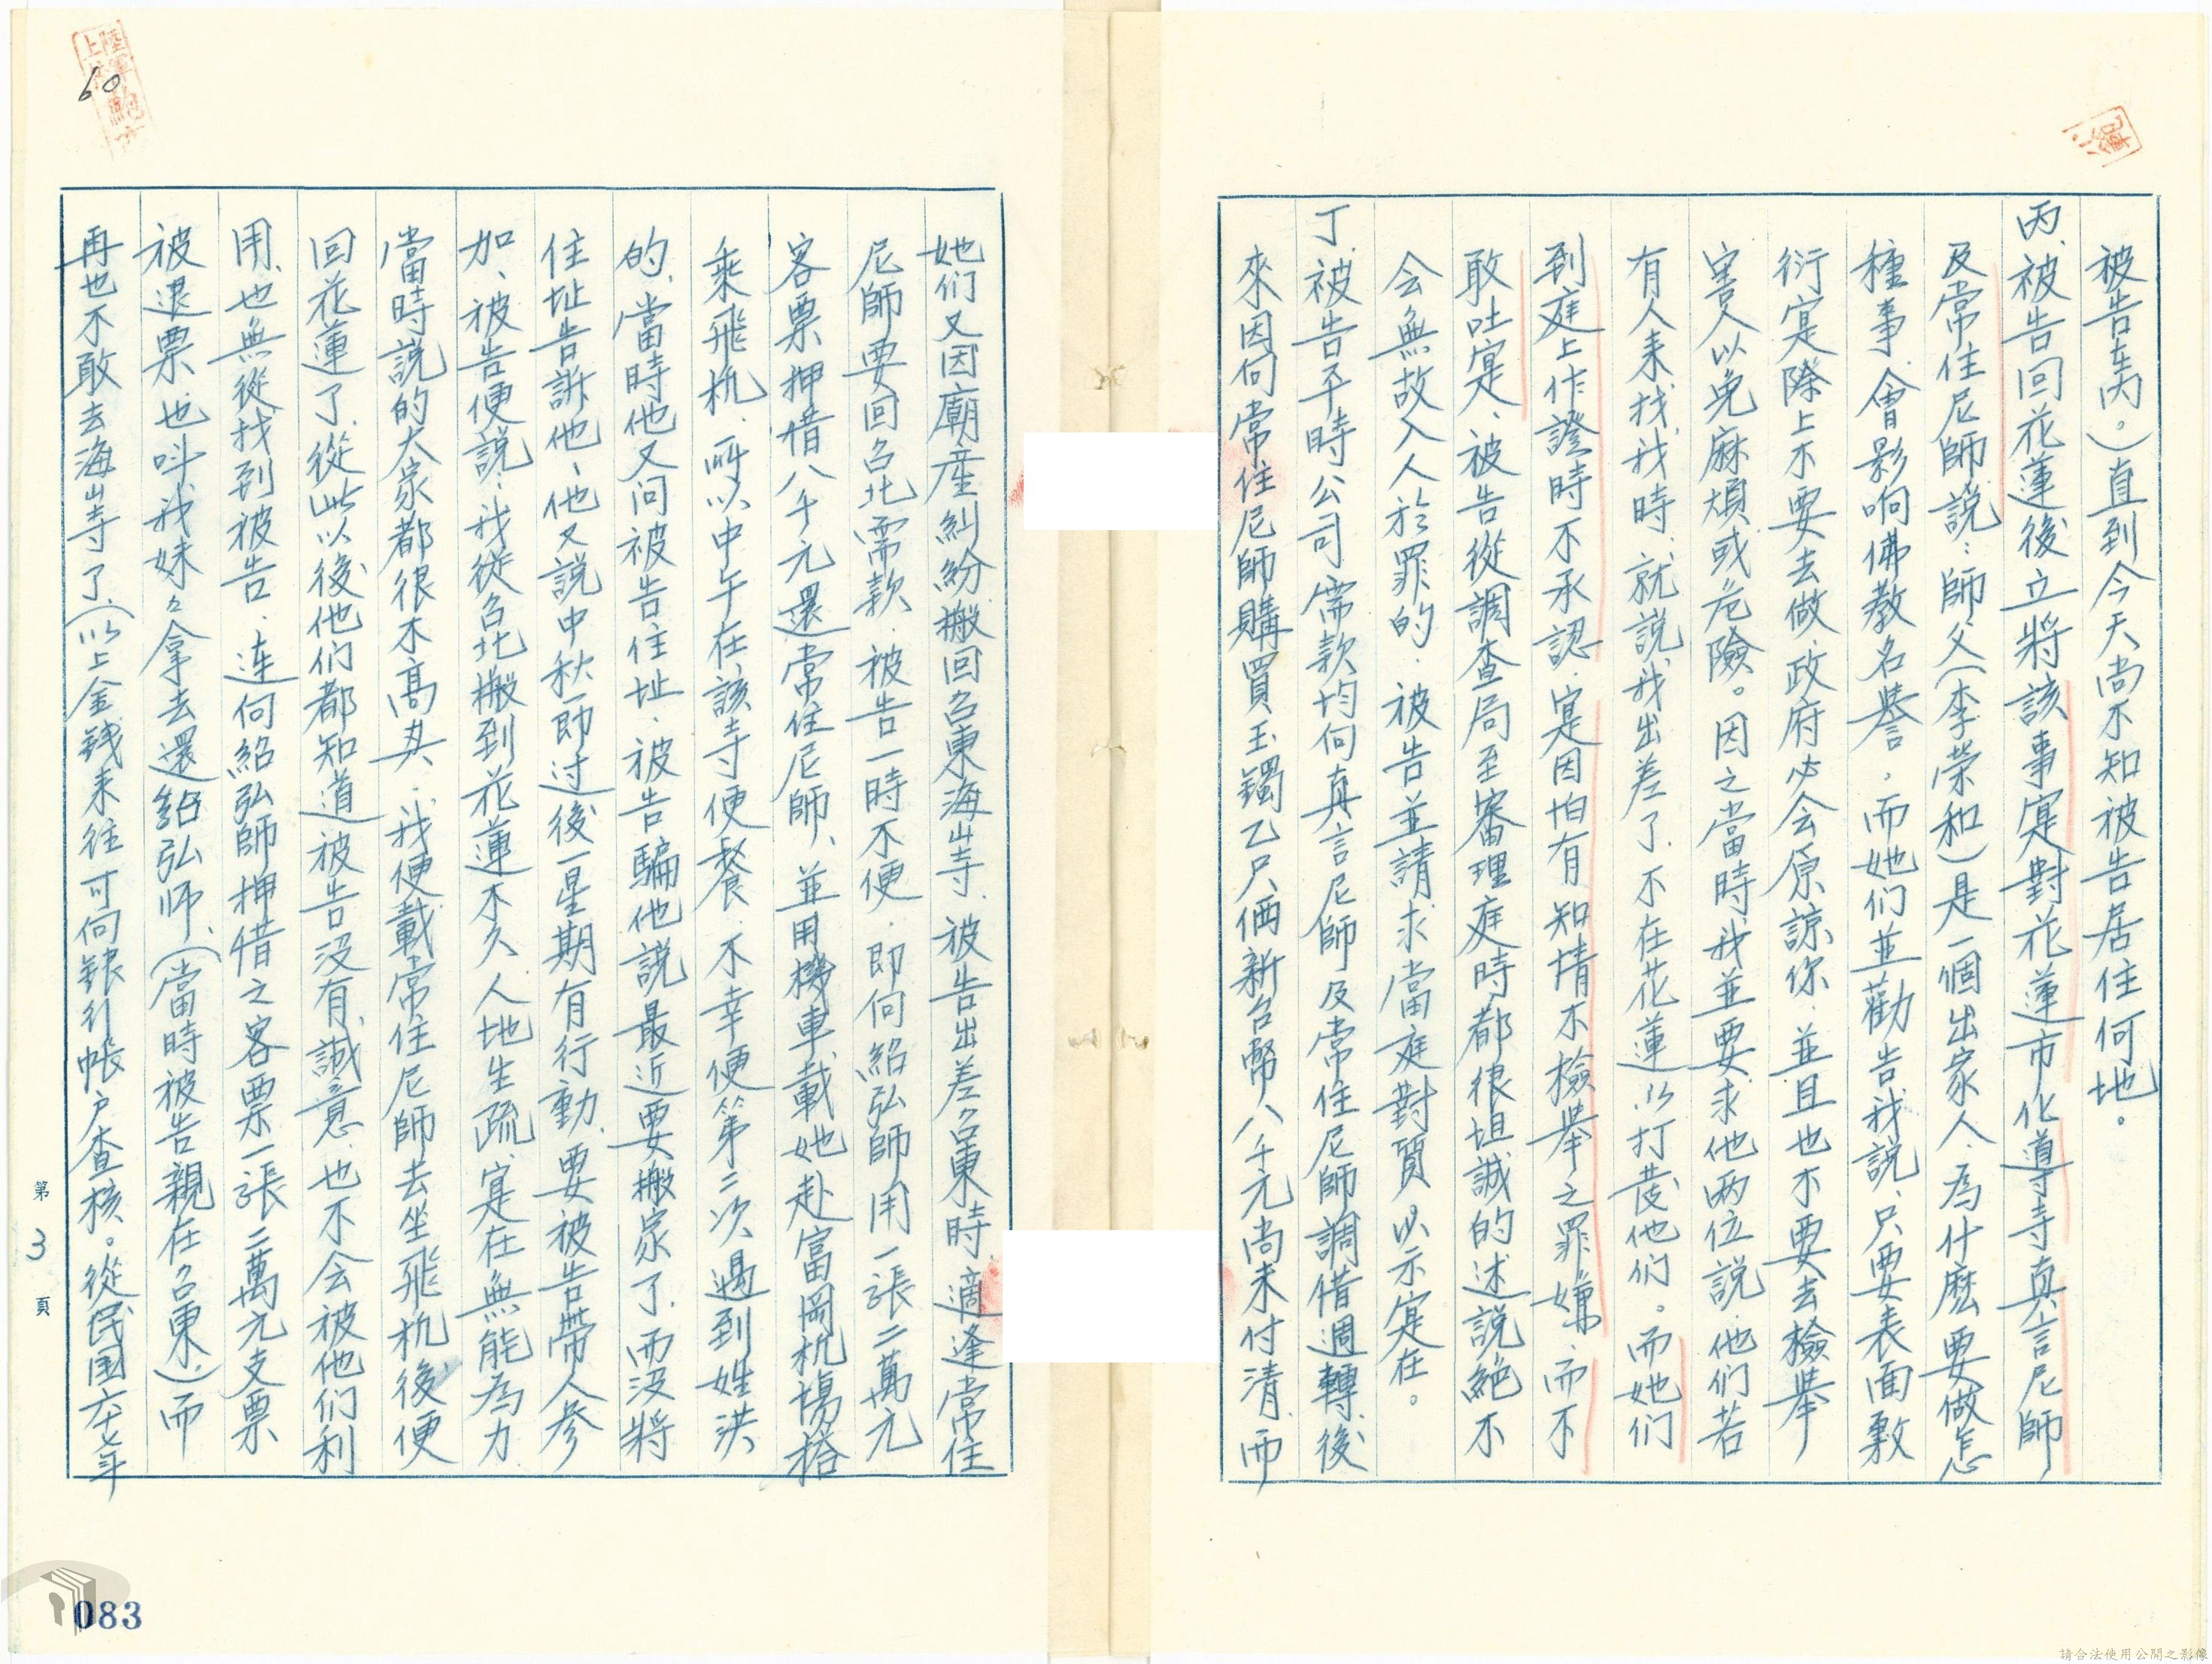 被告走內。)直到今天尚不知被告居住何地。
丙、被告回花蓮後立將該事寔對花蓮市化導寺真言尼師
及常住尼師說：師父(李荣和)是一個出家人、為什麽要做怎
種事、會影响佛教名譽，而她们並勸告我說、只要表面敷
衍寔際上不要去做、政府必会原諒你、並且也不要去檢举
害人以免麻煩或危險。因之當時我並要求他两位說、他们若
有人来找我時、就說我出差了、不在花蓮以打發他们。而她们
到庭上作證時不承認、寔因怕有知情不檢举之罪嫌、而不
敢吐寔、被告從調查局至審理庭時都很坦誠的述說絕不
会無故入人於罪的、被告並請求當庭對質以示寔在。
丁、被告平時公司需款均向真言尼師及常住尼師調借週轉、後
來因向常住尼師購買玉鐲乙只価新台幣八千元尚未付清、而
她们又因廟產糾紛搬回台東海山寺、被告出差台東時、適逢常住
尼師要回台北需款、被告一時不便、即向紹弘師用一張二萬元
客票押借八千元還常住尼師、並用機車載她赴富岡机場搭
乘飛机、所以中午在該寺便餐、不幸便第二次遇到姓洪
的、當時他又问被告住址、被告騙他說最近要搬家了、而沒將
住址告訴他、他又說中秋節过後一星期有行動、要被告帶人参
加、被告便說：我從台北搬到花蓮不久人地生疏、寔在無能為力
當時說的大家都很不高兴、我便載常住尼師去坐飛机後便
回花蓮了、從此以後他们都知道被告沒有誠意、也不会被他们利
用、也無從找到被告、連向紹弘師押借之客票一張二萬元支票
被退票、也叫我妹々拿去還給弘师、(當時被告親在台東)而
再也不敢去海山寺了、(以上金錢来往可向銀行帳户查核。從民国六十七年
第3頁
60
083
請合法使用公開之影像